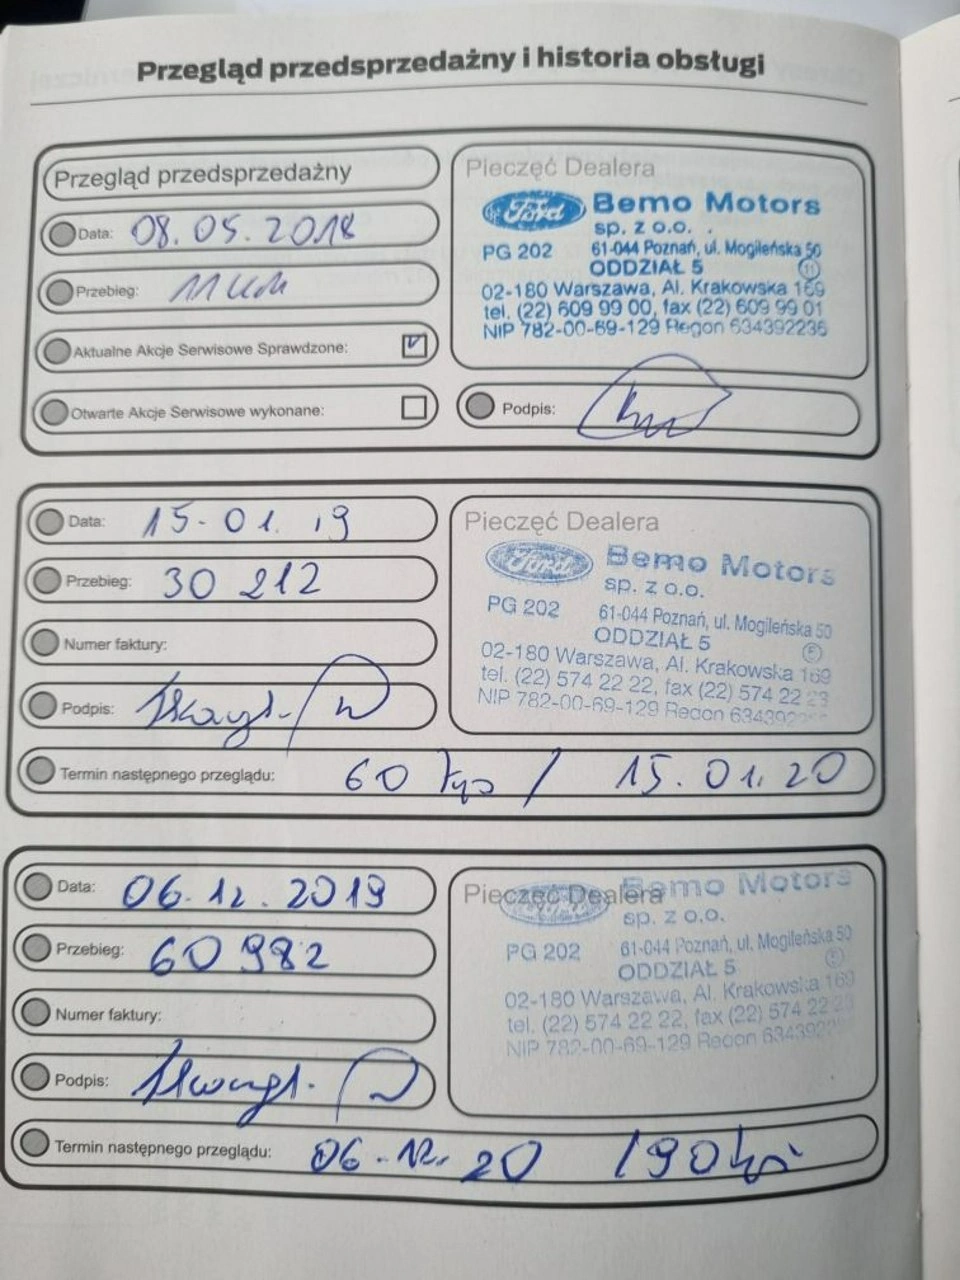 Przegląd przedsprzedażny i historia obsługi
Przegląd przedsprzedażny
Data: 08.05.2018
Przebieg: 11 km
Aktualne Akcje Serwisowe Sprawdzone:
Otwarte Akcje Serwisowe wykonane:
Pieczęć Dealera
Ford Bemo Motors
sp. z o.o.
PG 202 61-044 Poznań, ul. Mogileńska 50
ODDZIAŁ 5 11
02-180 Warszawa, Al. Krakowska 169
tel. (22) 609 99 00, fax (22) 609 99 01
NIP 782-00-69-129 Regon 634392236
Podpis:
Data: 15-01.19
Przebieg: 30 212
Numer faktury:
Podpis:
Pieczęć Dealera
Ford Bemo Motors
sp. z o.o.
PG 202 61-044 Poznań, ul. Mogileńska 50
ODDZIAŁ 5
02-180 Warszawa, Al. Krakowska 169
tel. (22) 574 22 22, fax (22) 574 22
NIP 782-00-69-129 Regon
Termin następnego przeglądu: 60 tys / 15.01.20
Data: 06.12.2019
Przebieg: 60 982
Numer faktury:
Podpis:
Pieczęć Dealera
Bemo Motors
sp. z o.o.
PG 202 61-044 Poznań, ul. Mogileńska 50
ODDZIAŁ 5
02-180 Warszawa, Al. Krakowska 169
tel. (22) 574 22 22, fax (22) 574 22
NIP 782-00-69-129 Regon
Termin następnego przeglądu: 06.12.20 / 90 tys